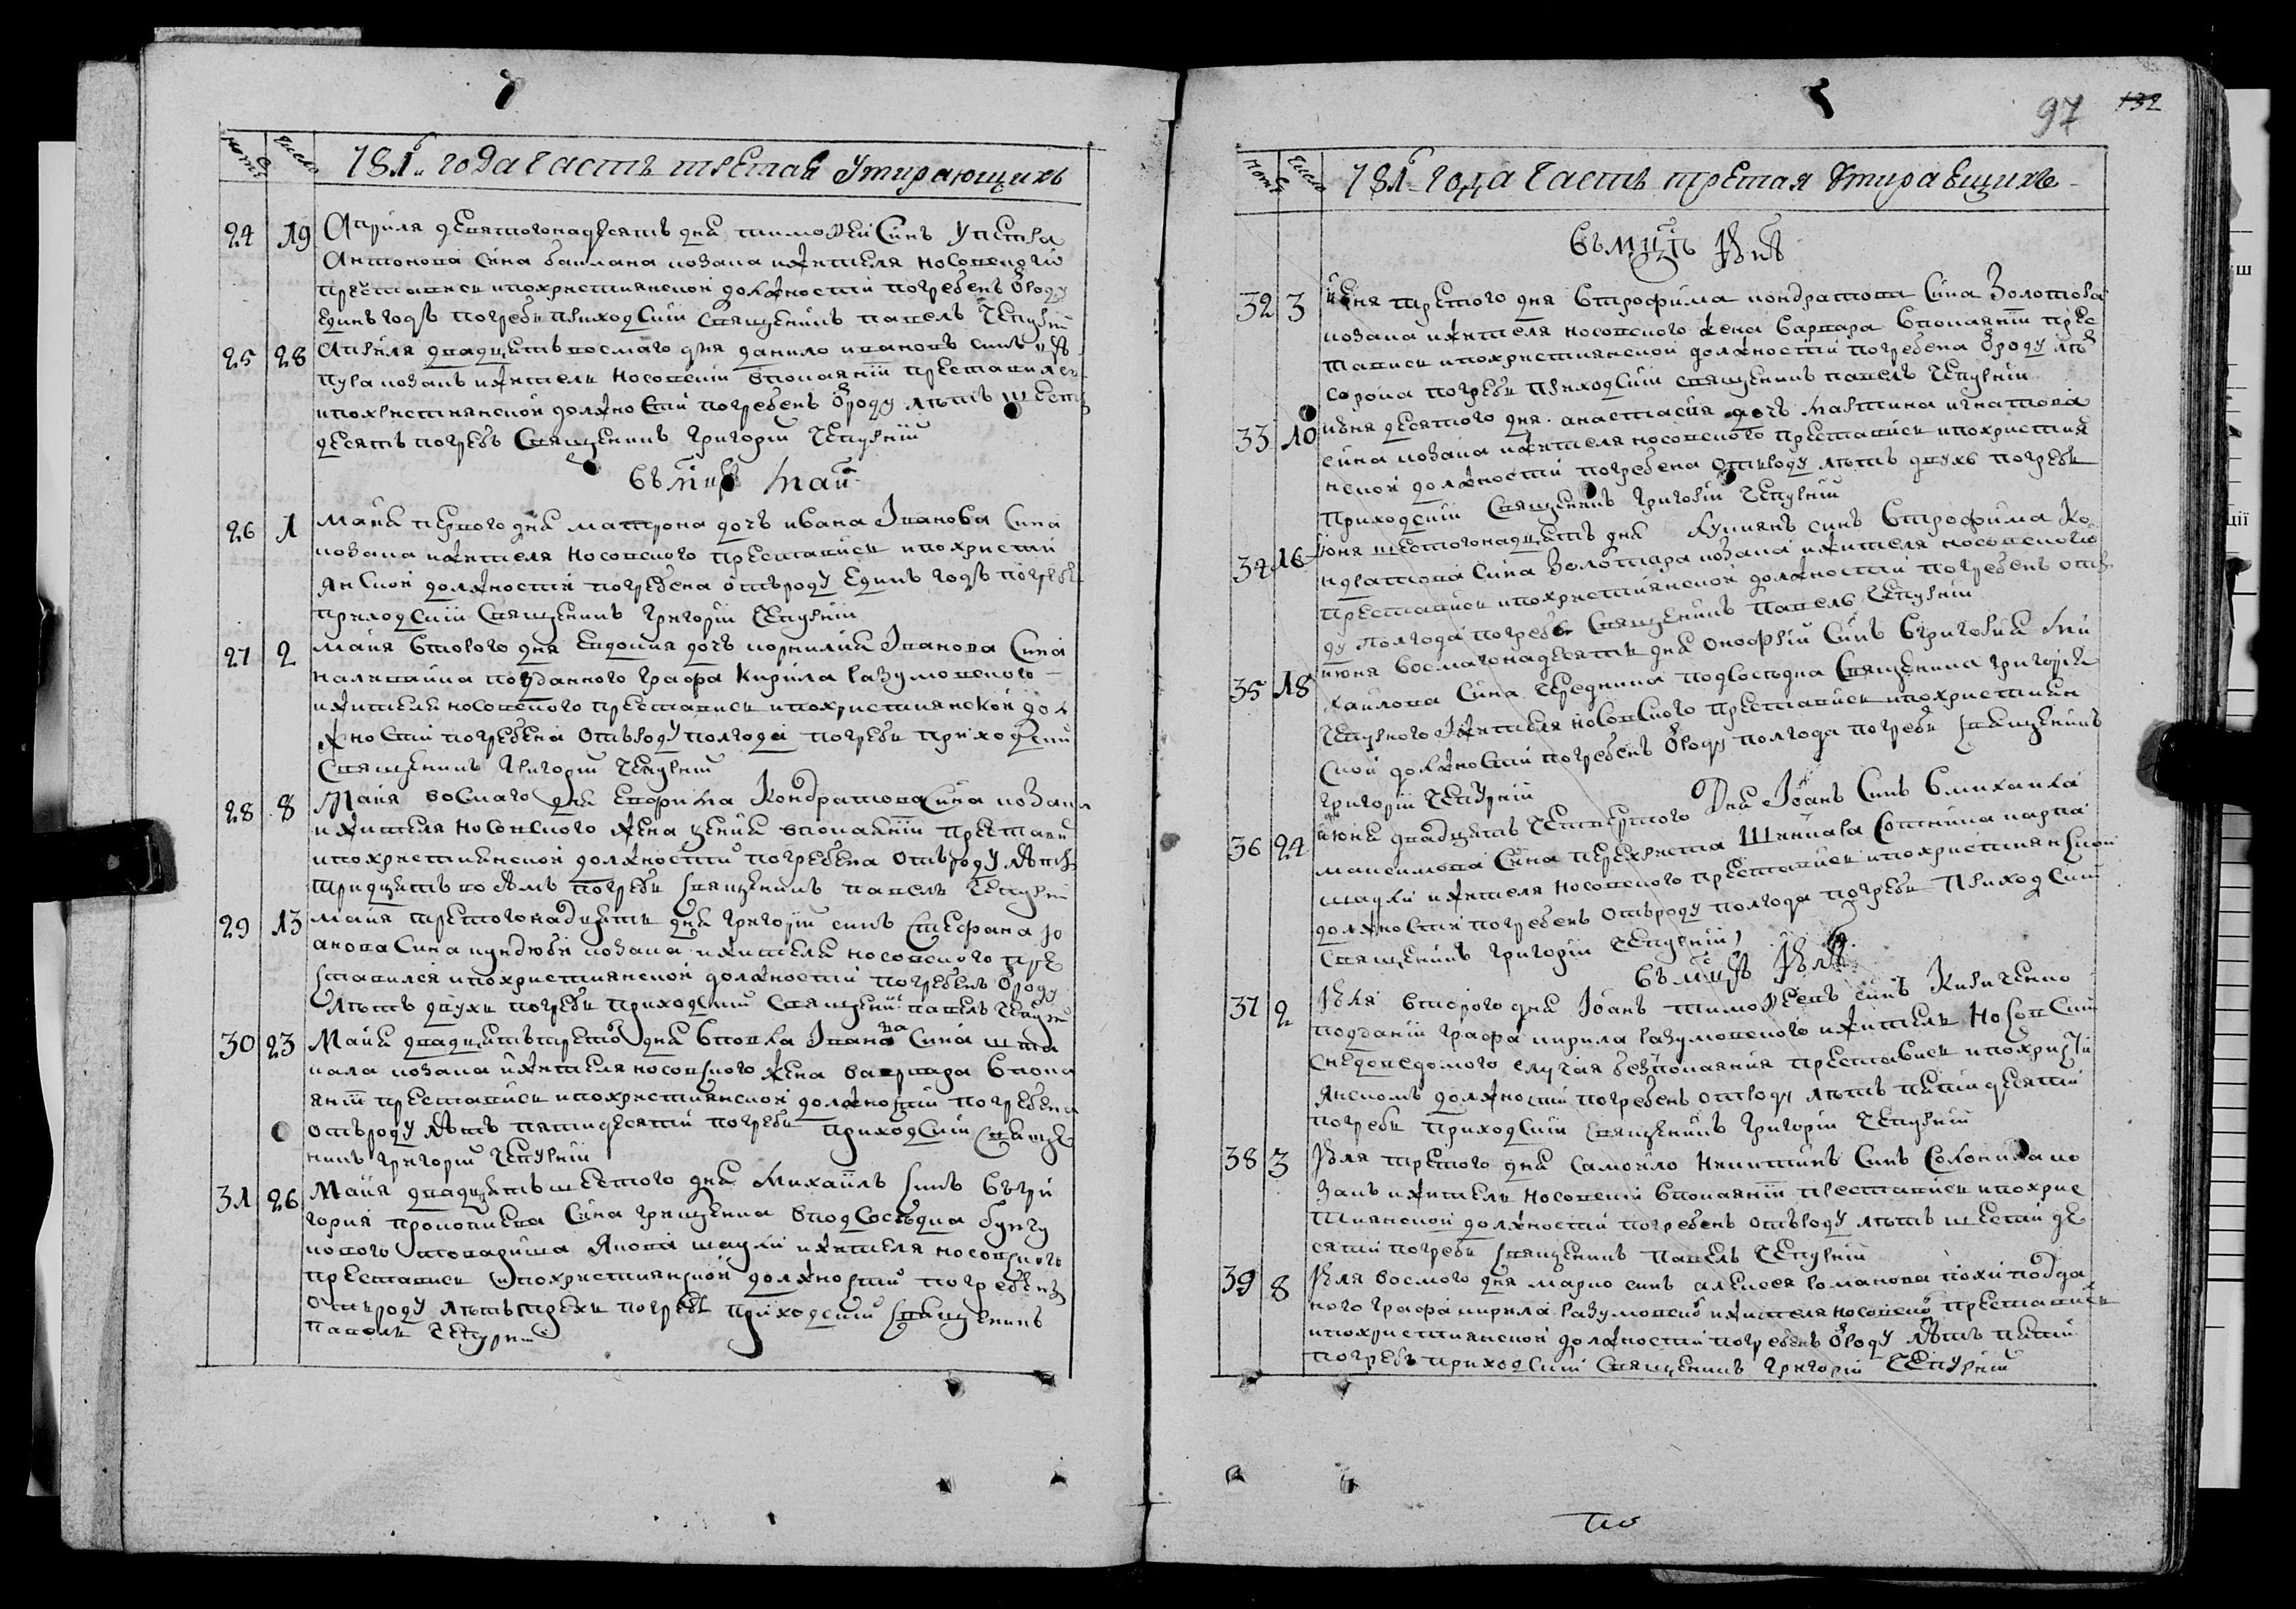 97 132
1781 года часть третая Умирающихъ
24 19 Априля девятогонадесять дня тимофей Синъ у петра
Антонова Сина козака и жителя носовского
преставися и похристиянской должности погребенъ Ѿ роду
Единъ годъ погребе приходский Священникъ павелъ Чепурний
25 28 Априля двадцять восмаго дня данило ивановъ синъ
козакъ и житель Носовский в покаянии преставился
и похристиянской должности погребенъ Ѿ роду лѣтъ шесть
десять погребъ Священникъ Григорий Чепурний
въ мцѣ маи
26 1 Маия первого дня матрона дочъ ивана Іванова Сина
козака и жителя Носовского преставися и похристи
янской должности погребена ѿтъ роду Единъ годъ погребе
приходский Священникъ Григорий Чепурний
27 2 маия второго дня Евдокия дочъ корнилия Іванова Сина
наливайка подданного графа Кирила Разумовского
и жителя носовского преставися и похристиянской дол
жности погребена отъ роду полгода погребе приходский
Священникъ Григорий Чепурний
28 8 Маия восмаго дня Кондратова Сина козака
и жителя Носовского жена в покаянии престави
и похристиянской должности погребена отъ роду лѣтъ
тридцять восѣмъ погребе Священникъ павелъ Чепурний
29 13 маия третогонадцять дня григорий синъ Стефана Іо
анова Сина козака и жителя носовского пре
ставился и похристиянской должности погребенъ Ѿ роду
лѣтъ двухъ погребе приходский Священникъ павелъ Чепурни
30 23 Маия двадцять трето дня Іванова Сина
козака и жителя носовского жена варвара в пока
янии преставися и похристиянской должности погребена
отъ роду лѣтъ пятидесяти погребе приходский Священ
никъ григорий Чепурний
31 26 Маия двадцять шестого дня Михаилъ синъ в гри
гория прокопиева Сина гриценка в подсосѣдка бунчу
кового товариша Якова шаулы и жителя носовского
преставися и похристиянской должности погребенъ
отъ роду лѣтъ трехъ погребе приходский Священникъ
павелъ Чепурний
1781 года часть третая Умирающихъ
въ мцѣ Іюнѣ
32 3 июня третого дня в трофима кондратова Сина Золотара
козака и жителя носовского жена варвара в покаянии прес
тавися и похристиянской должности погребена Ѿ роду лѣтъ
сорока погребе приходский священникъ павелъ Чепурний
33 10 июня десятого дня анастасия дочъ мартина игнатова
сина козака и жителя носовского преставися и похристия
нской должности погребена отъ роду лѣтъ двухъ погребе
приходский Священникъ Григорий Чепурний
34 16 Іюня шестогонадцять дня Куприянъ синъ в трофима Ко
ндратова Сина Золотара козака и жителя носовского
преставися и похристиянской должности погребенъ отъ ро
ду полгода погребе Священникъ павелъ Чепурний
35 18 июня восмагонадесять дня Онофрий Синъ в григория Ми
хайлова Сина Чередника подсосѣдка Священника григория
Чепурного Жителя носовского преставися и похристиян
ской должности погребенъ Ѿ роду полгода погребе Священникъ
Григорий Чепурний
36 24 июня двадцять Четвертого Дня Іоанъ Синъ в михаила
максимова Сина перехриста Сотника карпа
шаулы и жителя носовского преставися и похристиянской
должности погребенъ отъ роду полгода погребе Приходский
Священникъ Григорий Чепурний
въ мцѣ Іюлѣ
37 2 Іюля второго дня Іоанъ тимофеевъ синъ Кириченко
подданий графа кирила Разумовского и житель Носовский
с недоведомого случая без покаяния преставися и похристи
янскомъ должности погребенъ отъ роду лѣтъ пятидесяти
погребе приходский Священникъ Григорий Чепурний
38 3 Июля третого дня Самойло Никитинъ Синъ Солоника ко
закъ и житель носовский в покаянии преставися и похрис
тиянской должности погребенъ отъ роду лѣтъ шести де
сяти погребе Священникъ Павелъ Чепурний
39 8 Июля восмого дня марко синъ алексея романова подда
ного графа кирила Разумовско и жителя носовско преставися
и похристиянской должности погребенъ Ѿ роду лѣтъ пяти
погребъ приходский Священникъ Григорий Чепурний